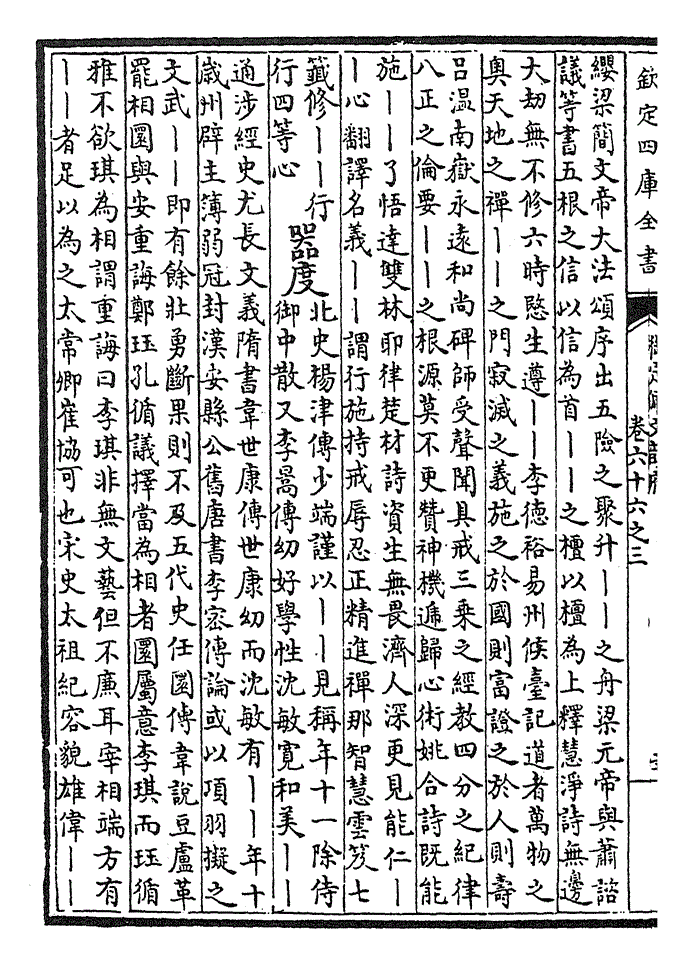 欽定四庫全書
卷六十六之三
纓梁簡文帝大法頌序出五險之聚升｜｜之舟梁元帝與蕭諮
議等書五根之信以信為首｜｜之檀以檀為上釋慧淨詩無邊
大劫無不修六時愍生遵｜｜李德裕易州候臺記道者萬物之
奧天地之禪｜｜之門寂滅之義施之於國則富證之於人則壽
吕温南嶽永遠和尚碑師受聲聞具戒三乗之經教四分之紀律
八正之倫要｜｜之根源莫不更贊神機遞歸心術姚合詩既能
施｜｜了悟達雙林耶律楚材詩資生無畏濟人深更見能仁｜
｜心翻譯名義｜｜謂行施持戒辱忍正精進禪那智慧雲笈七
籤修｜｜行
行四等心
器度
北史楊津傳少端謹以｜｜見稱年十一除侍
御中散又李暠傳幼好學性沈敏寬和美｜｜
通涉經史尤長文義隋書韋世康傳世康幼而沈敏有｜｜年十
嵗州辟主簿弱冠封漢安縣公舊唐書李密傳論或以項羽擬之
文武｜｜即有餘壯勇斷果則不及五代史任圜傳韋說豆盧革
罷相圜與安重誨鄭珏孔循議擇當為相者圜屬意李琪而珏循
雅不欲琪為相謂重誨曰李琪非無文藝但不亷耳宰相端方有
｜｜者足以為之太常卿崔協可也宋史太祖紀容貌雄偉｜｜